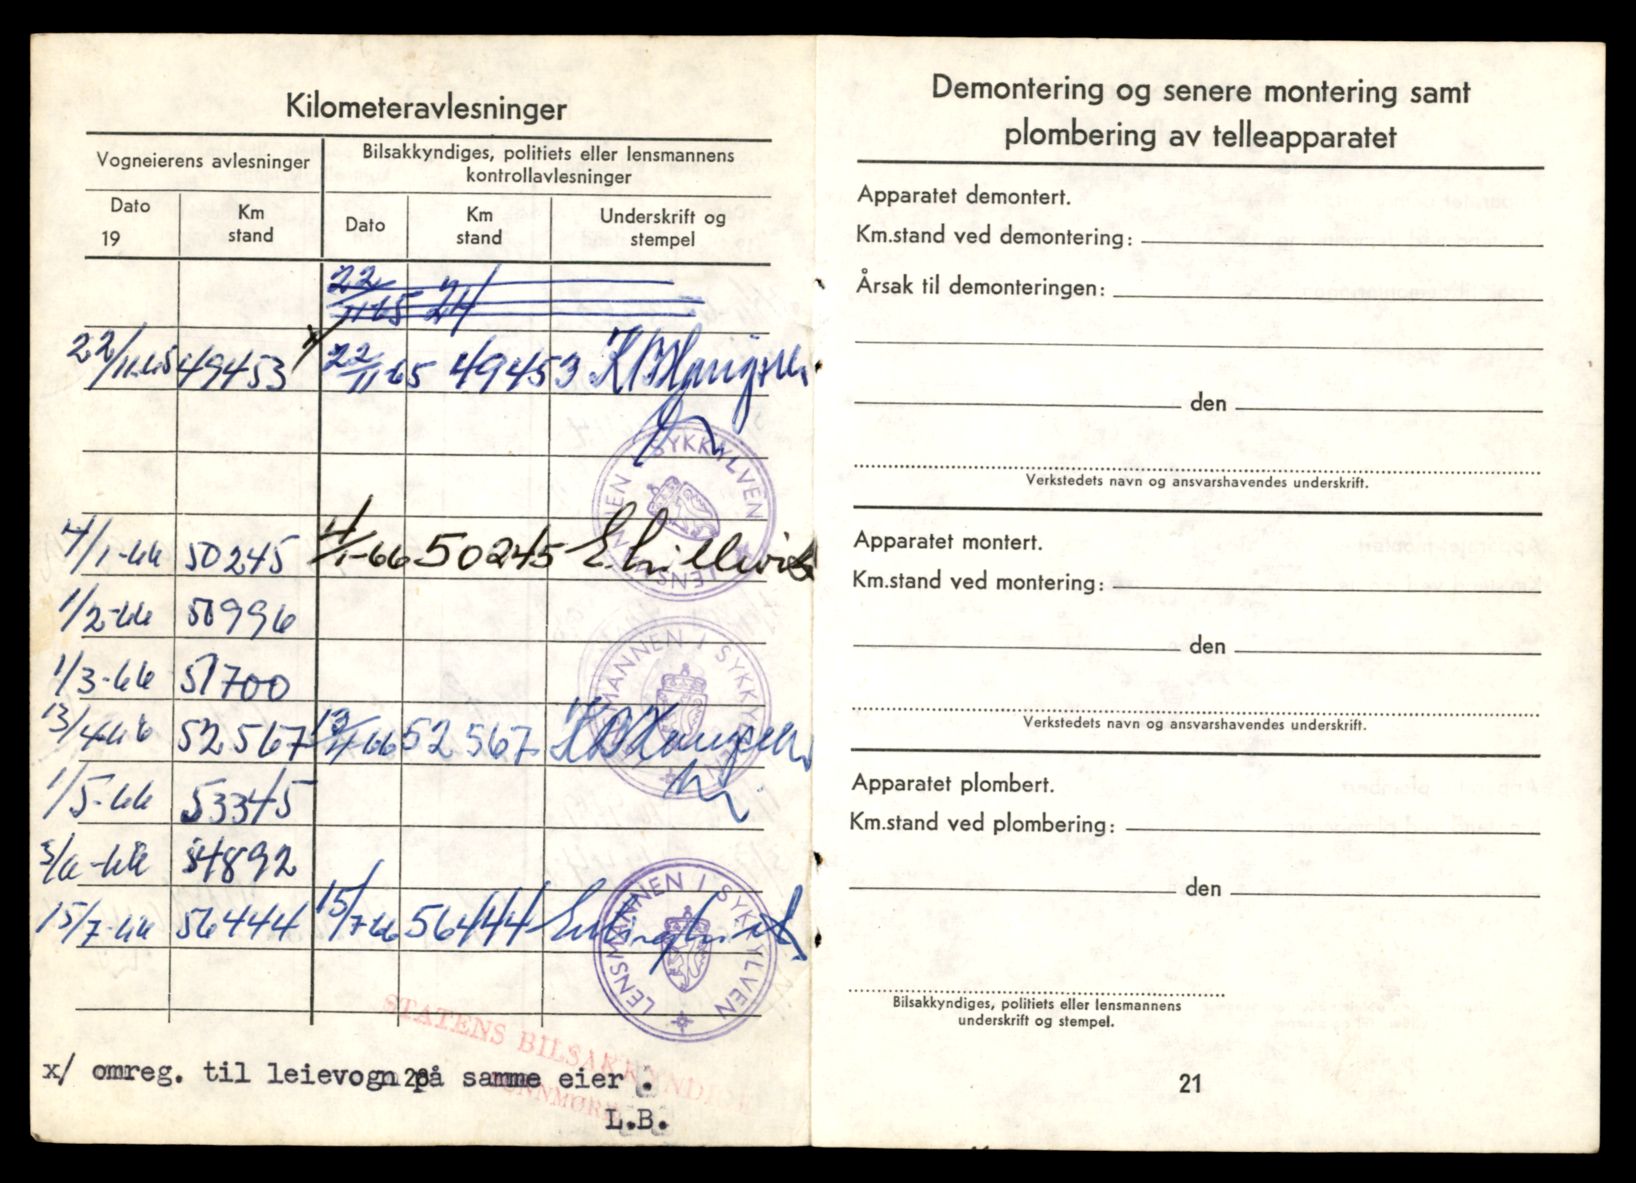 Kilometeravlesninger
Vogneierens avlesninger
Bilsakkyndiges, politiets eller lensmannens
kontrollavlesninger
Dato
19
Km
stand
Dato
Km
stand
Underskrift og
stempel
22/11-65 24
22/11-65 49453 x/ 22/11-65 49453
LENSMANNEN I SYKKYLVEN
4/1-66 50245 4/1-66 50245
1/2-66 50996
1/3-66 51700
LENSMANNEN I SYKKYLVEN
13/4-66 52567 13/4-66 52567
1/5-66 53345
5/6-66 54892
15/7-66 56444 15/7-66 56444
LENSMANNEN I SYKKYLVEN
STATENS BILSAKKYNDIGE
x/ omreg. til leievogn på samme eier.
20
L.B.
Demontering og senere montering samt
plombering av telleapparatet
Apparatet demontert.
Km.stand ved demontering:
Årsak til demonteringen:
den
Verkstedets navn og ansvarshavendes underskrift.
Apparatet montert.
Km.stand ved montering:
den
Verkstedets navn og ansvarshavendes underskrift.
Apparatet plombert.
Km.stand ved plombering:
den
Bilsakkyndiges, politiets eller lensmannens
underskrift og stempel.
21